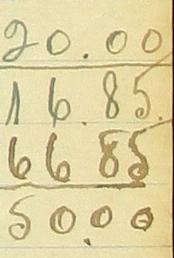 20.00
16.85
66 85
50.00